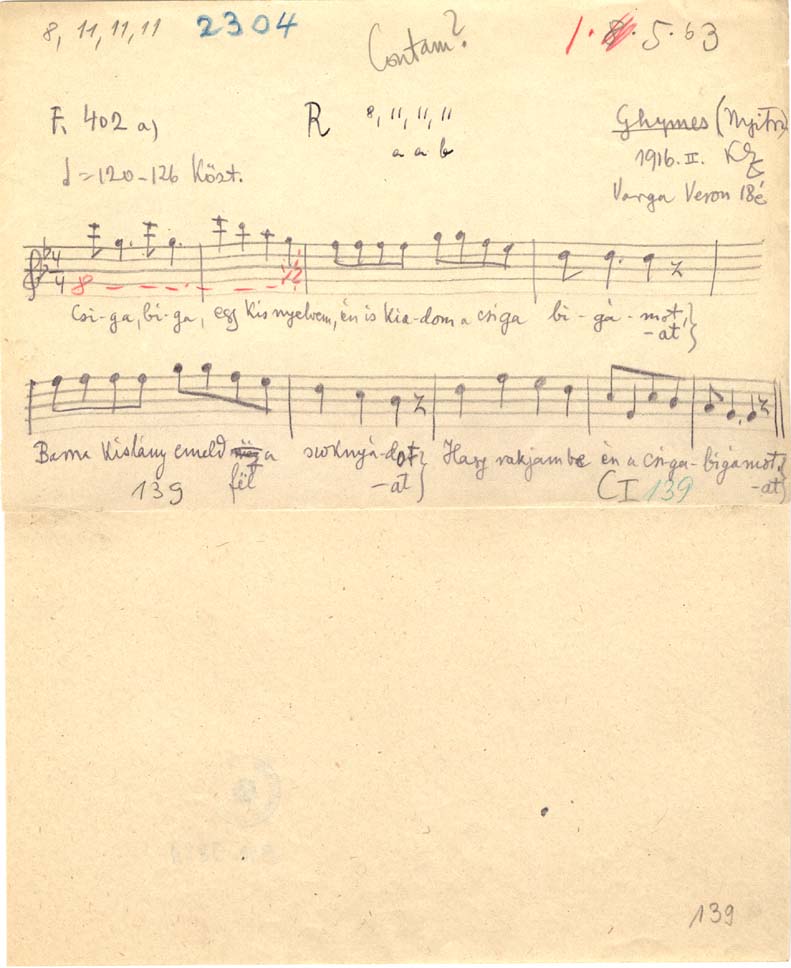 8, 11, 11, 11 2304 Contam? 1. 5. 63
F. 402 a) R 8, 11, 11, 11 Ghymes (Nyitra)
a a b 1916. II. KZ
=120-126 Közt. Varga Veron 18é
4
4
8 12
Csi-ga, bi-ga, egy kis nyelvem, én is kia-dom a csiga bi-gá-mot,
-at
Barna kislány emeld még a szoknyá-dot Hagy rakjam be én a csi-ga-bigámot.
fël -at -at
139 CI 139
139